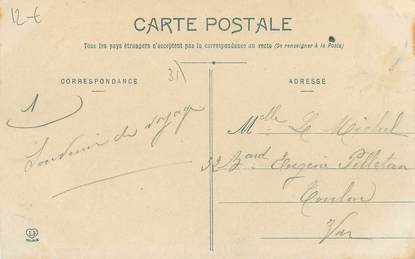 12-€
CARTE POSTALE
Tous les pays étrangers n'acceptent pas la correspondance au recto (Se renseigner à la Poste)
31)
CORRESPONDANCE
1
Souvenir de voyage
ADRESSE
Mlle Le Michel
32 Bard Eugène Pelletan
Toulon
Var